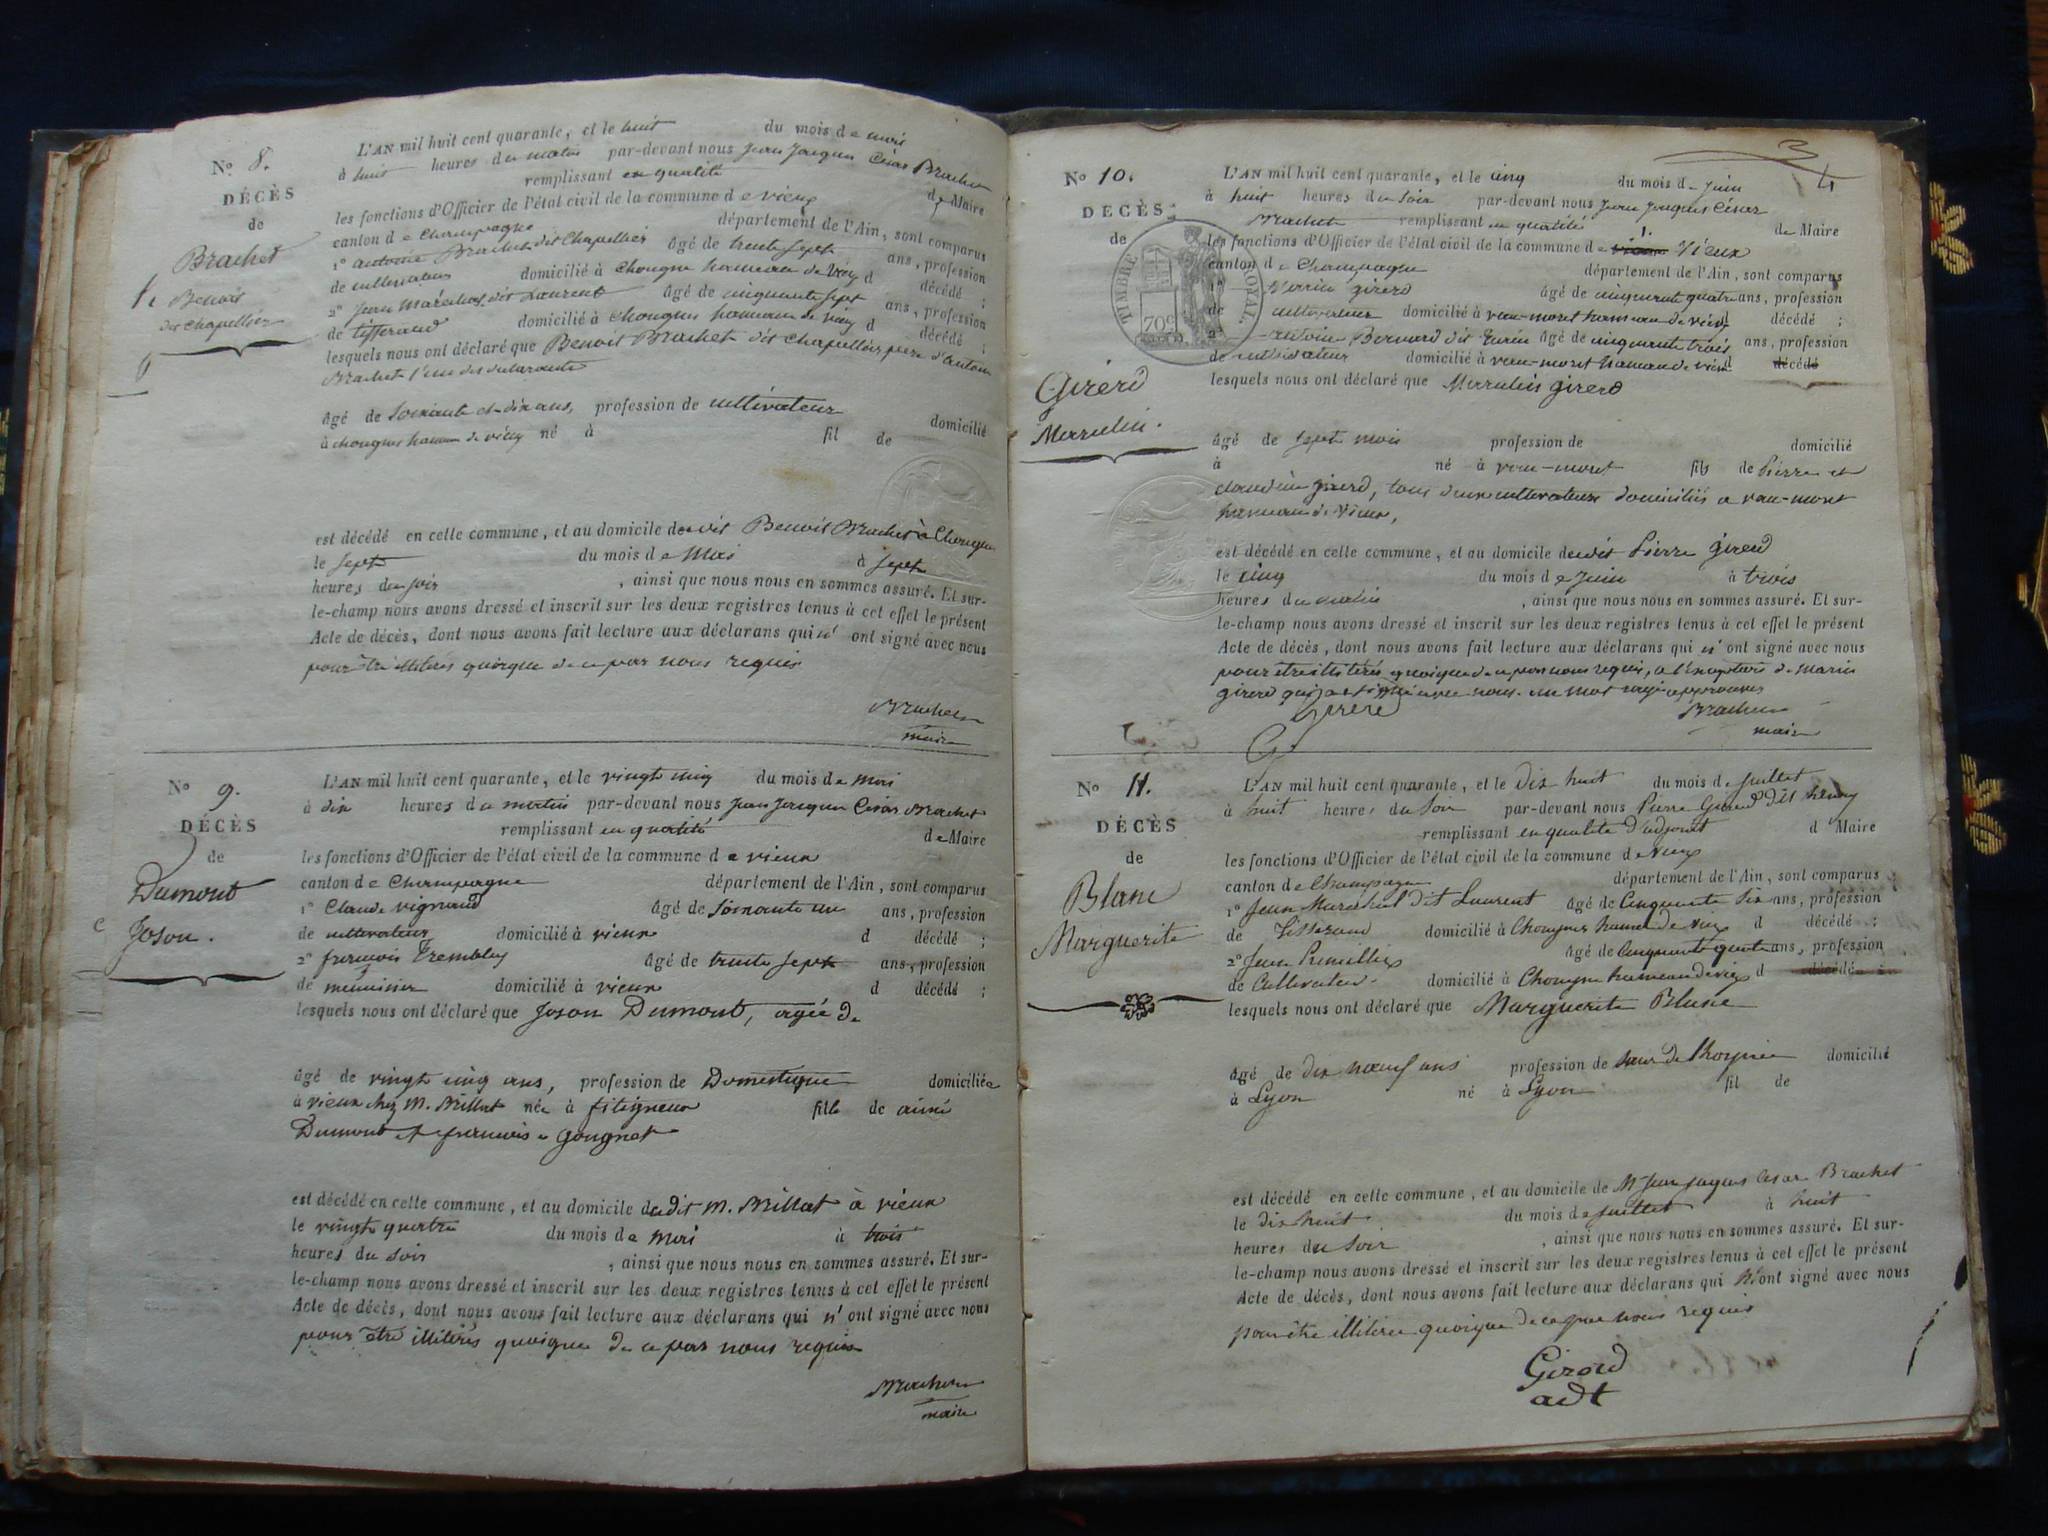 N° 8.
DÉCÈS
de
Brachet
Benoit
dit Chapellier
L'AN mil huit cent quarante, et le huit du mois de mai
à huit heures du matin par-devant nous Jean Jacques César Brachet
remplissant en qualité de Maire
les fonctions d'Officier de l'état civil de la commune de vieux
canton de Champagne département de l'Ain, sont comparus
1° antoine Brachet dit Chapellier âgé de trente sept ans, profession
de cultivateur domicilié à Chongne hameau de vieu d décédé ;
2° Jean Maréchal dit Laurent âgé de cinquante sept ans, profession
de tisserand domicilié à Chongne hameau de vieu d décédé ;
lesquels nous ont déclaré que Benoit Brachet dit Chapellier, père d'antoine
Brachet l'un des déclarants
âgé de soixante et dix ans, profession de cultivateur domicilié
à chongne hameau de vieu né à fil de
est décédé en cette commune, et au domicile dudit Benoit Brachet à Chongne
le sept du mois de Mai à sept
heures du soir , ainsi que nous nous en sommes assuré. Et sur-
le-champ nous avons dressé et inscrit sur les deux registres tenus à cet effet le présent
Acte de décès, dont nous avons fait lecture aux déclarans qui n' ont signé avec nous
pour être illitérés quoique de ce par nous requis
Brachet
maire
N° 9.
DÉCÈS
de
Dumont
Joson.
L'AN mil huit cent quarante, et le vingt cinq du mois de mai
à dix heures du matin par-devant nous Jean Jacques César Brachet
remplissant en qualité de Maire
les fonctions d'Officier de l'état civil de la commune de vieux
canton de Champagne département de l'Ain, sont comparus
1° Claude vignand âgé de soixante un ans, profession
de cultivateur domicilié à vieux d décédé ;
2° françois Tremblay âgé de trente sept ans, profession
de meunier domicilié à vieux d décédé ;
lesquels nous ont déclaré que Joson Dumont, agée de
âgé de vingt cinq ans, profession de Domestique domiciliée
à vieux chez M. Millet née à fitigneux fille de aimé
Dumont et françoise Gougnet
est décédé en cette commune, et au domicile dudit M. Millet à vieux
le vingt quatre du mois de Mai à trois
heures du soir , ainsi que nous nous en sommes assuré. Et sur-
le-champ nous avons dressé et inscrit sur les deux registres tenus à cet effet le présent
Acte de décès, dont nous avons fait lecture aux déclarans qui n' ont signé avec nous
pour être illitérés quoique de ce par nous requis
Brachet
maire
N° 10.
DÉCÈS
de
TIMBRE ROYAL.
70c
Girerd
Marcelin.
L'AN mil huit cent quarante, et le cinq du mois de Juin
à huit heures du soir par-devant nous Jean Jacques César
Brachet remplissant en qualité de Maire
les fonctions d'Officier de l'état civil de la commune de Vieux
canton de Champagne département de l'Ain, sont comparus
1° girerd âgé de cinquante quatre ans, profession
de cultivateur domicilié à vau-moret hameau de vieu décédé ;
2° antoine Bernard dit âgé de cinquante trois ans, profession
de cultivateur domicilié à vau-moret hameau de vieu décédé
lesquels nous ont déclaré que Marcelin girerd
âgé de sept mois profession de domicilié
à né à vau-moret fils de Pierre et
claudine girerd, tous deux cultivateurs domiciliés a vau-moret
hameau de Vieux,
est décédé en cette commune, et au domicile dudit Pierre Girerd
le cinq du mois de Juin à trois
heures du matin , ainsi que nous nous en sommes assuré. Et sur-
le-champ nous avons dressé et inscrit sur les deux registres tenus à cet effet le présent
Acte de décès, dont nous avons fait lecture aux déclarans qui n' ont signé avec nous
pour être illitérés quoique de ce par nous requis, a l'exception de
girerd qui a signé avec nous. un mot rayé approuvés
Girerd
Brachet
maire
N° 11.
DÉCÈS
de
Blanc
Marguerite
L'AN mil huit cent quarante, et le dix huit du mois de Juillet
à huit heures du Soir par-devant nous Pierre Girerd dit henry
remplissant en qualité d'adjoint d Maire
les fonctions d'Officier de l'état civil de la commune de vieux
canton de Champagne département de l'Ain, sont comparus :
1° Jean Marechal dit Laurent âgé de Cinquante six ans, profession
de Tisserand domicilié à Chongne hameau de vieux d décédé ;
2° Jean âgé de Cinquante quatre ans, profession
de Cultivateur. domicilié à Chongne hameau de vieux d décédé :
lesquels nous ont déclaré que Marguerite Blanc
âgé de dix noeuf ans profession de soeur de l'hospice domicilié
à Lyon né à Lyon fil de
est décédé en cette commune, et au domicile de Mr Jean Jaques César Brachet
le dix huit du mois de Juillet à huit
heures du Soir , ainsi que nous nous en sommes assuré. Et sur-
le-champ nous avons dressé et inscrit sur les deux registres tenus à cet effet le présent
Acte de décès, dont nous avons fait lecture aux déclarans qui n'ont signé avec nous
pour être illitérée quoique de ce par nous requis
Girerd
adt